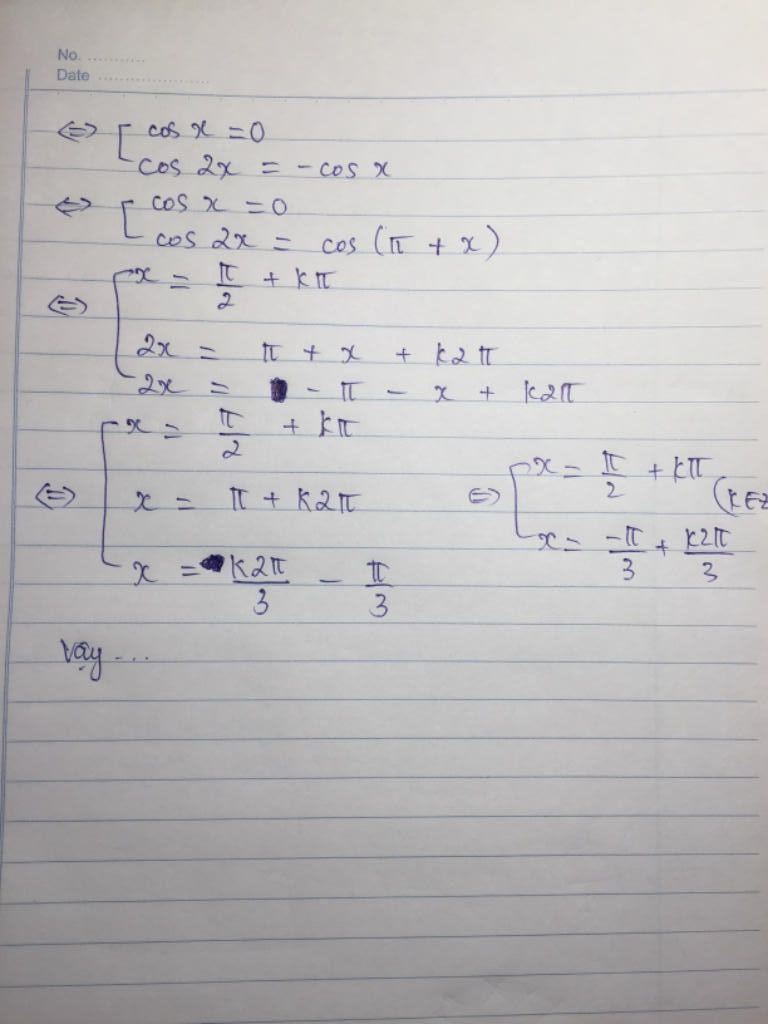 No. ...........
Date ......................
⇔ [ cos x = 0
cos 2x = - cos x
⇔ [ cos x = 0
cos 2x = cos (π + x)
⇔ [ x = π/2 + kπ
2x = π + x + k2π
2x = - π - x + k2π
⇔ [ x = π/2 + kπ
x = π + k2π
x = k2π/3 - π/3
⇔ [ x = π/2 + kπ
x = -π/3 + k2π/3
(k ∈ Z
Vậy ...